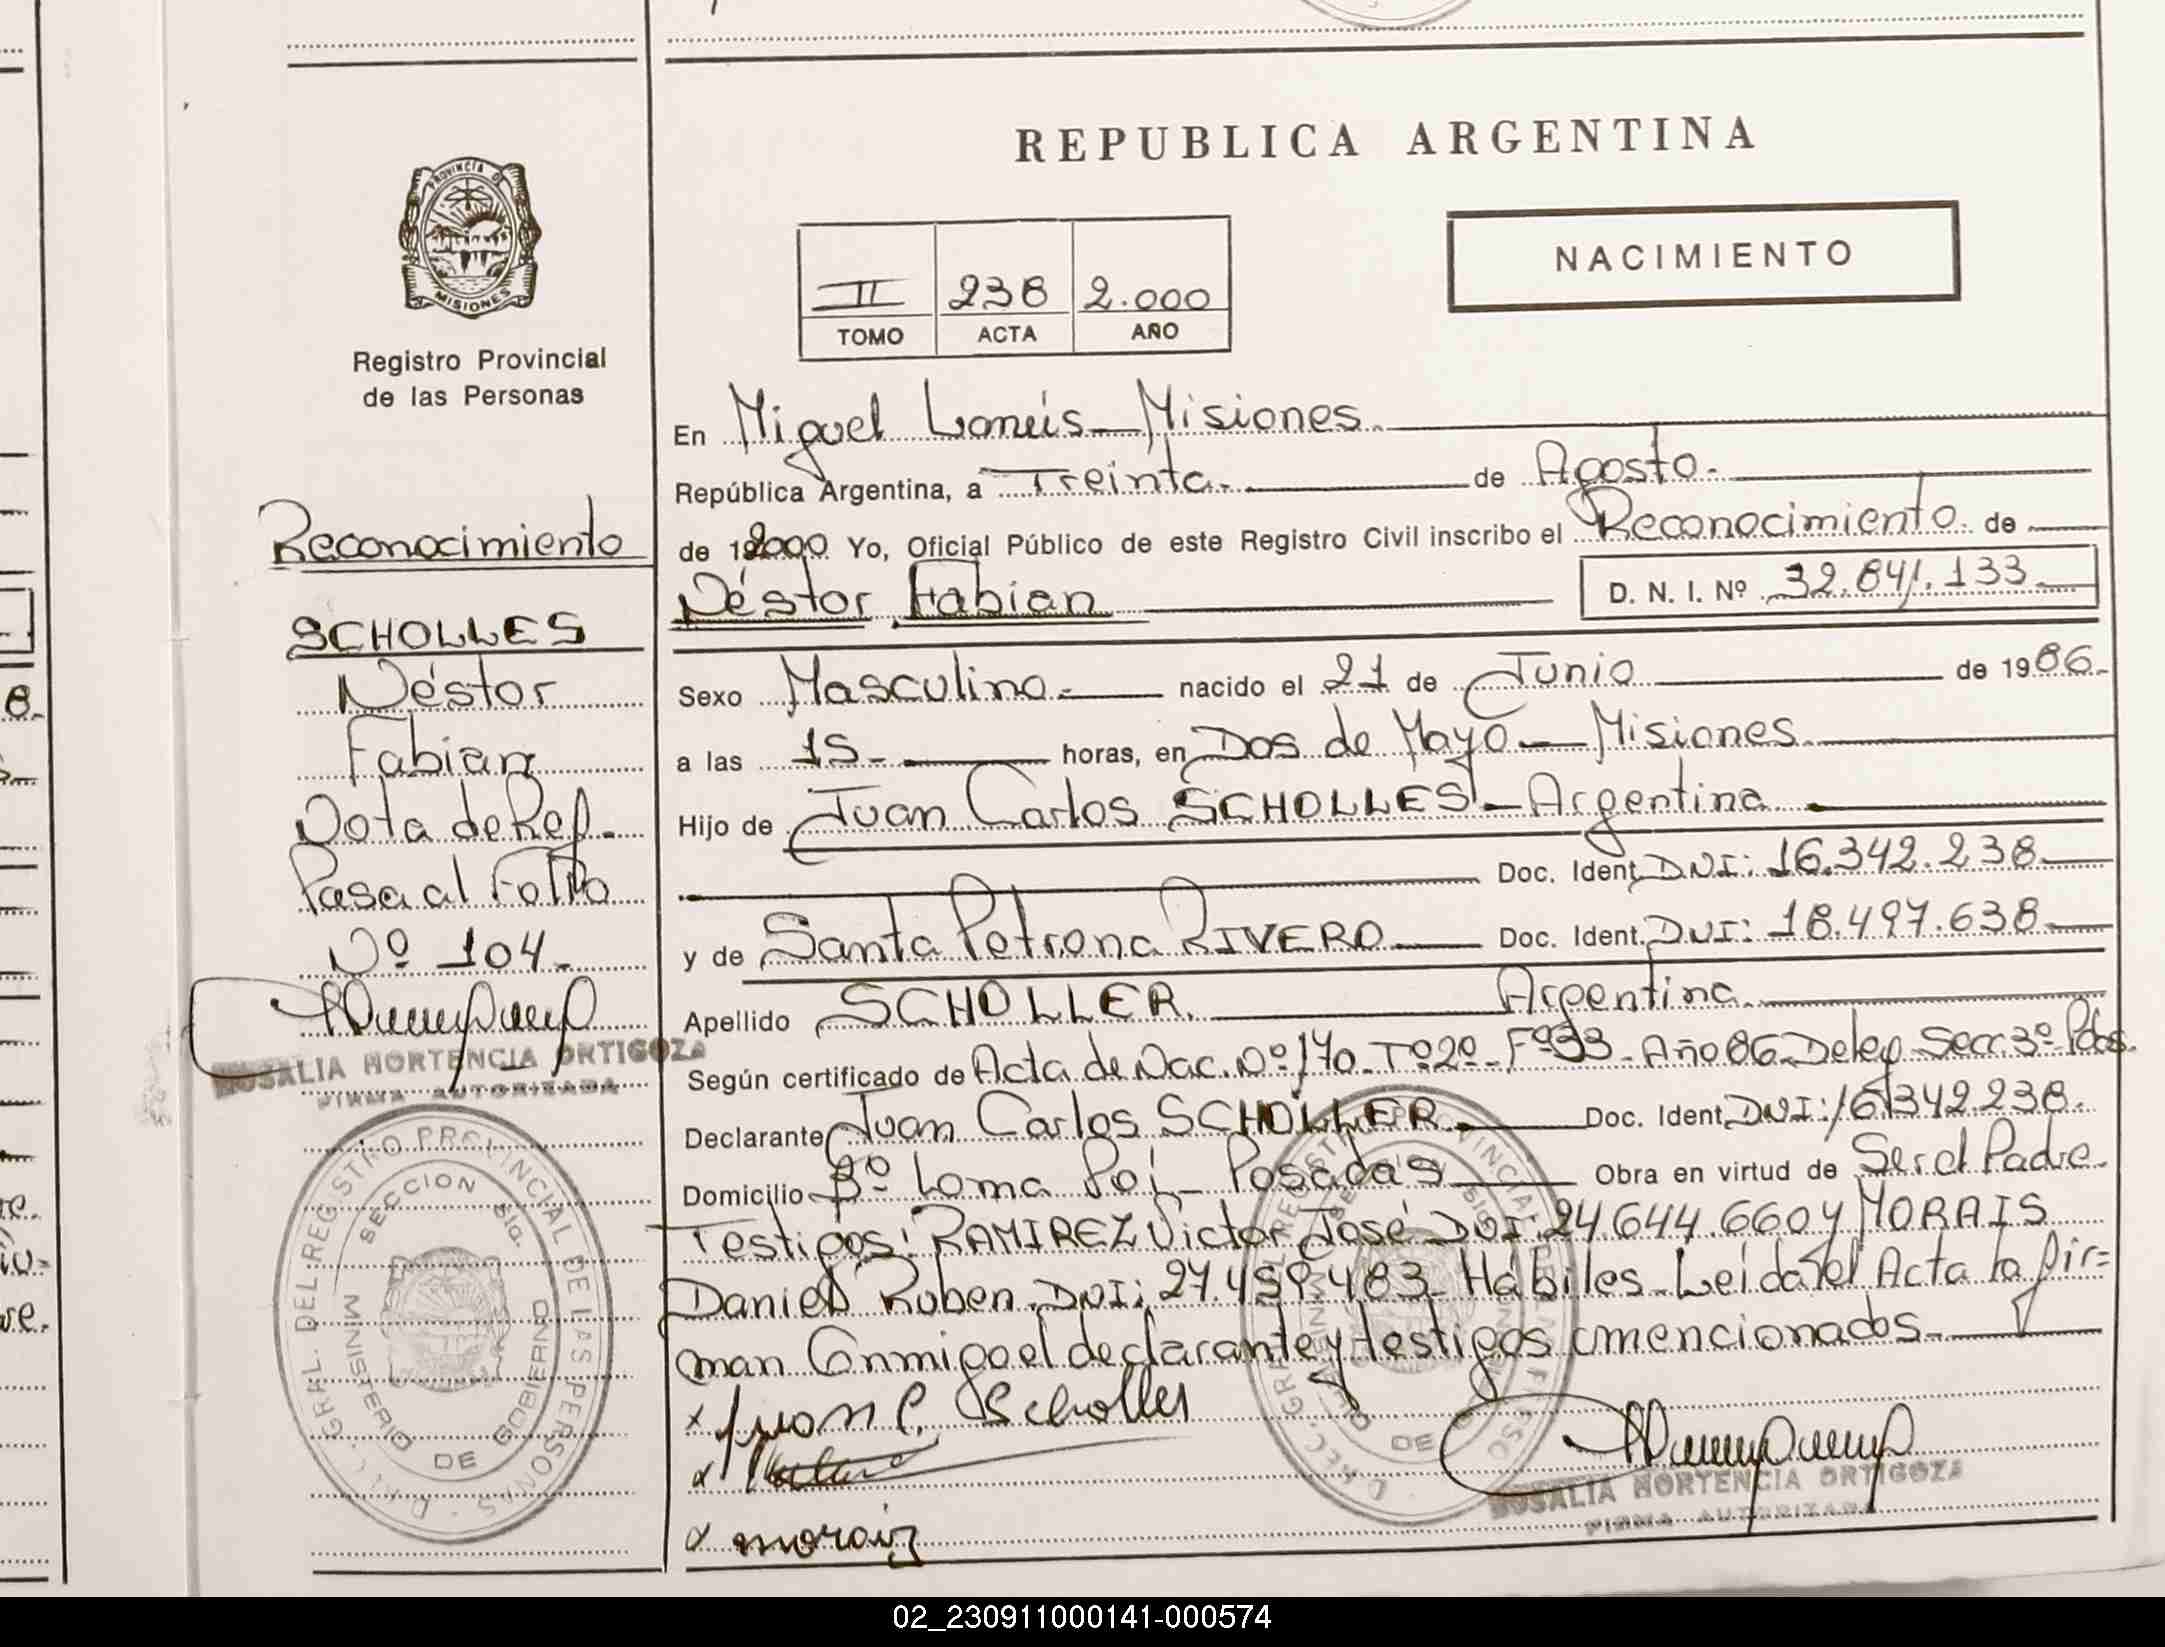 REPUBLICA ARGENTINA
NACIMIENTO
II 238 2.000
TOMO ACTA AÑO
PROVINCIA DE
MISIONES
Registro Provincial
de las Personas
Reconocimiento
SCHOLLES
Néstor
Fabian
Nota de Ref.
Pasa al Folio
Nº 104.
ROSALIA HORTENCIA ORTIGOZA
FIRMA AUTORIZADA
D REC. GRAL. DEL REGISTRO PROVINCIAL DE LAS PERSONAS
SECCION 5ta.
MINISTERIO DE GOBIERNO
En Miguel Lanús - Misiones.
República Argentina, a Treinta. de Agosto.
de 2000 Yo, Oficial Público de este Registro Civil inscribo el Reconocimiento de
Néstor Fabian D. N. I. Nº 32.841.133.
Sexo Masculino. nacido el 21 de Junio de 1986.
a las 15. horas, en Dos de Mayo - Misiones.
Hijo de Juan Carlos SCHOLLES - Argentina
Doc. Ident. DNI: 16.342.238
y de Santa Petrona RIVERO Doc. Ident. DNI: 18.497.638
Apellido SCHOLLER. Argentina.
Según certificado de Acta de Nac. Nº 170. Tº 2º - Fº 33 - Año 86 - Deleg. Secc. 3º Pdas.
Declarante Juan Carlos SCHOLLER. Doc. Ident. DNI: 16342.238.
Domicilio Bº Loma Poi - Posadas Obra en virtud de Ser el Padre.
Testigos: RAMIREZ Victor José DNI: 24.644.660 y MORAIS
Daniel Ruben. DNI: 27.459.483 Hábiles - Leida el Acta la fir=
man Conmigo el declarante y testigos mencionados.
x Juan C. Scholler
x
x morais
ROSALIA HORTENCIA ORTIGOZA
FIRMA AUTORIZADA
02_230911000141-000574